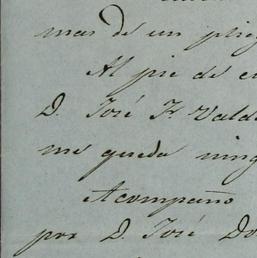 mas de un plieg
Al pie de e
D. José F. Vald
me queda ning
Acompaño
por D. José Do